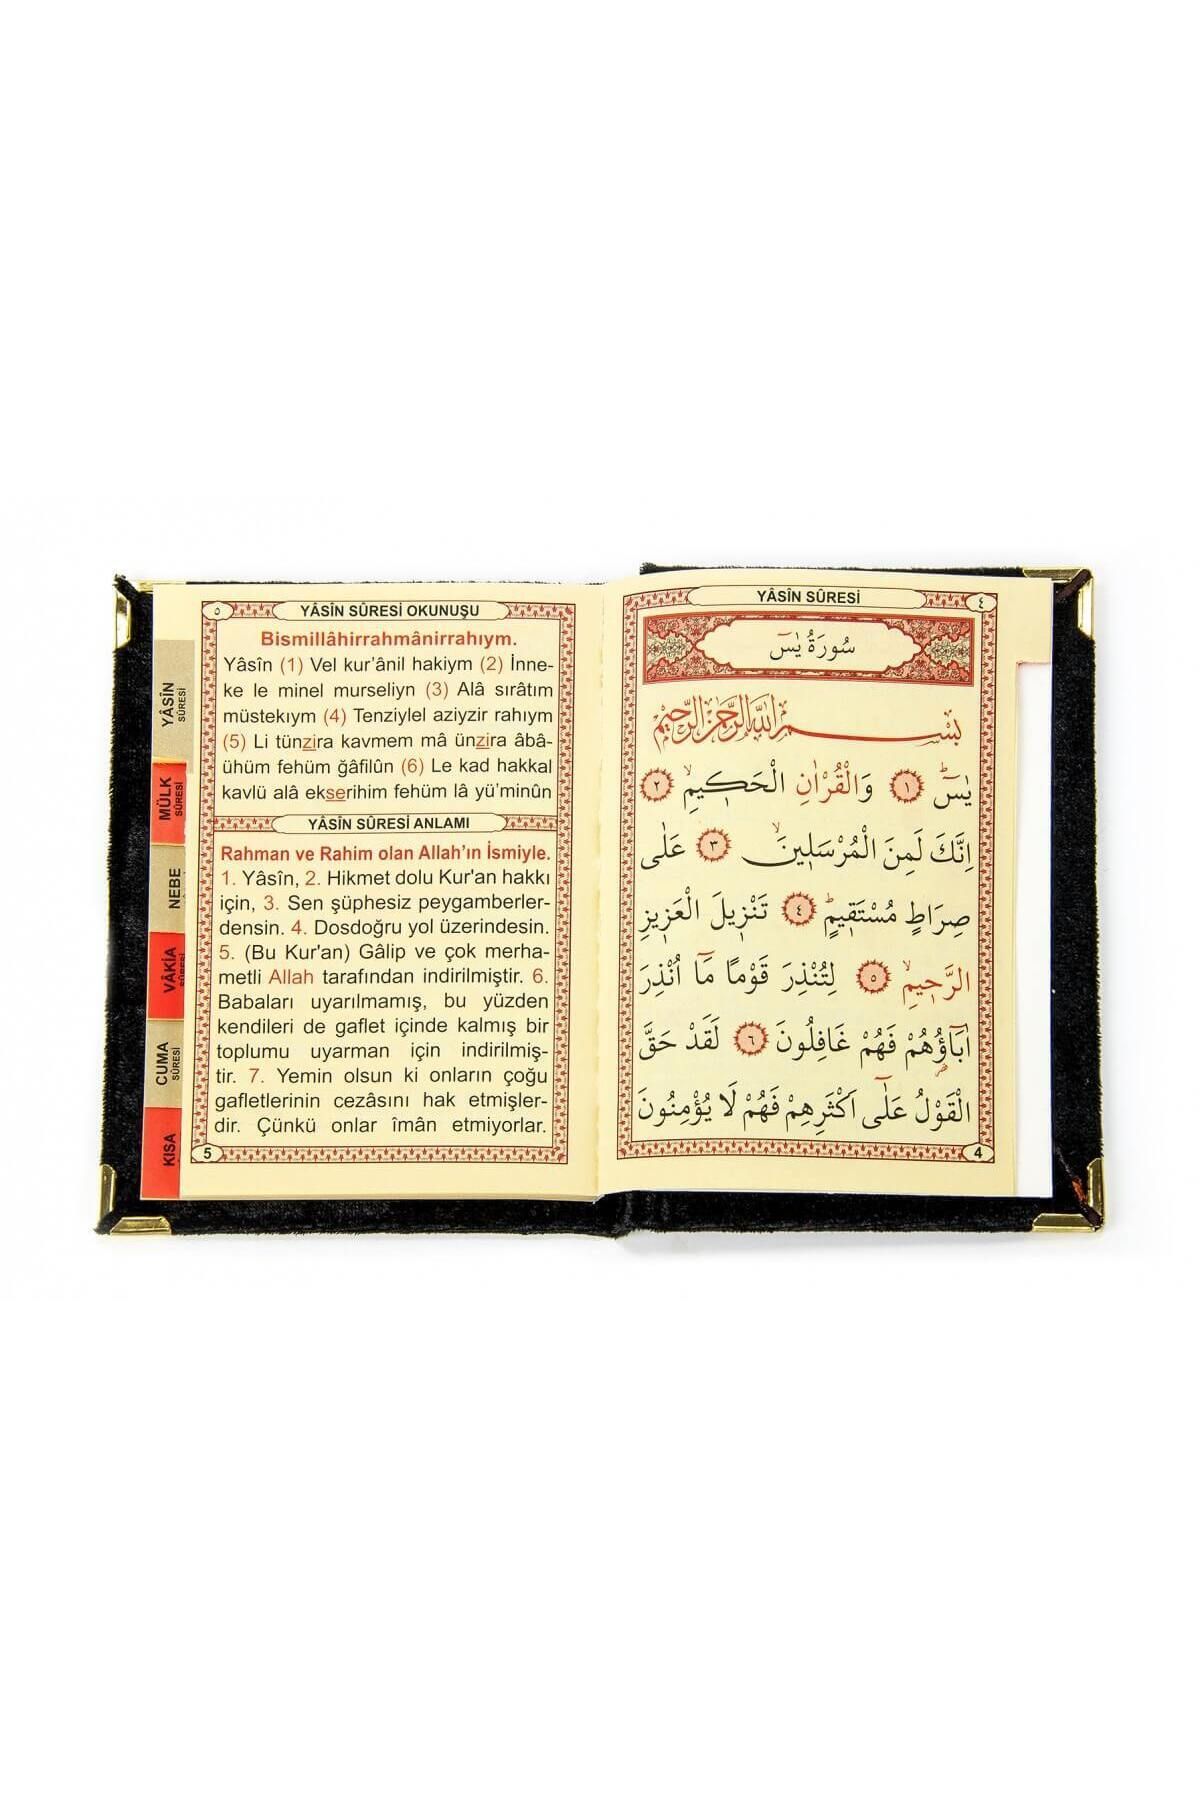 YÂSÎN SÛRESİ
٤
سُورَةُ يٰسٓ
بِسْمِ اللّٰهِ الرَّحْمٰنِ الرَّحِيمِ
يٰسٓ ۜ ﴿١﴾ وَالْقُرْاٰنِ الْحَك۪يمِۙ ﴿٢﴾
اِنَّكَ لَمِنَ الْمُرْسَل۪ينَۙ ﴿٣﴾ عَلٰى
صِرَاطٍ مُسْتَق۪يمٍۜ ﴿٤﴾ تَنْز۪يلَ الْعَز۪يزِ
الرَّح۪يمِۙ ﴿٥﴾ لِتُنْذِرَ قَوْمًا مَٓا اُنْذِرَ
اٰبَٓاؤُ۬هُمْ فَهُمْ غَافِلُونَ ﴿٦﴾ لَقَدْ حَقَّ
الْقَوْلُ عَلٰٓى اَكْثَرِهِمْ فَهُمْ لَا يُؤْمِنُونَ
4
٥
YÂSÎN SÛRESİ OKUNUŞU
Bismillâhirrahmânirrahıym.
Yâsîn (1) Vel kur’ânil hakiym (2) İnne-
ke le minel murseliyn (3) Alâ sırâtım
müstekıym (4) Tenziylel aziyzir rahıym
(5) Li tünzira kavmem mâ ünzira âbâ-
ühüm fehüm ğâfilûn (6) Le kad hakkal
kavlü alâ ekserihim fehüm lâ yü’minûn
YÂSÎN SÛRESİ ANLAMI
Rahman ve Rahim olan Allah’ın İsmiyle.
1. Yâsîn, 2. Hikmet dolu Kur'an hakkı
için, 3. Sen şüphesiz peygamberler-
densin. 4. Dosdoğru yol üzerindesin.
5. (Bu Kur'an) Gâlip ve çok merha-
metli Allah tarafından indirilmiştir. 6.
Babaları uyarılmamış, bu yüzden
kendileri de gaflet içinde kalmış bir
toplumu uyarman için indirilmiş-
tir. 7. Yemin olsun ki onların çoğu
gafletlerinin cezâsını hak etmişler-
dir. Çünkü onlar îmân etmiyorlar.
5
YÂSÎN
SÛRESİ
MÜLK
SÛRESİ
NEBE
VÂKIA
SÛRESİ
CUMA
SÛRESİ
KISA